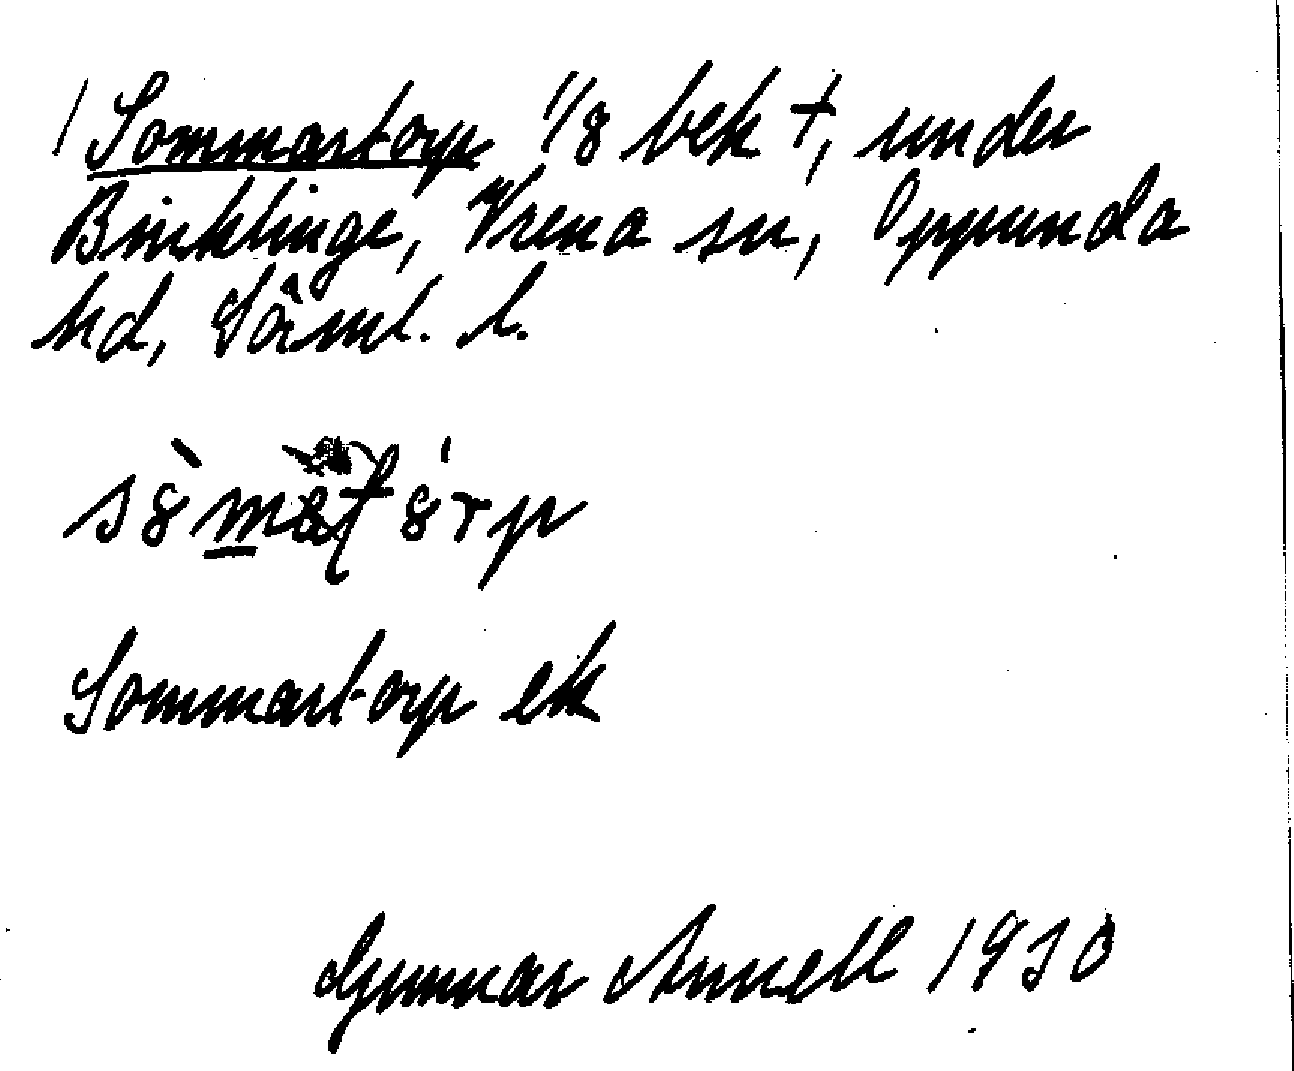 / Sommartorp 1/8 bek t, under
Bärklinge, Vrena sn, Oppunda
hd, Sörml. l.
Sommartorp ek
Gunnar Annell 1930